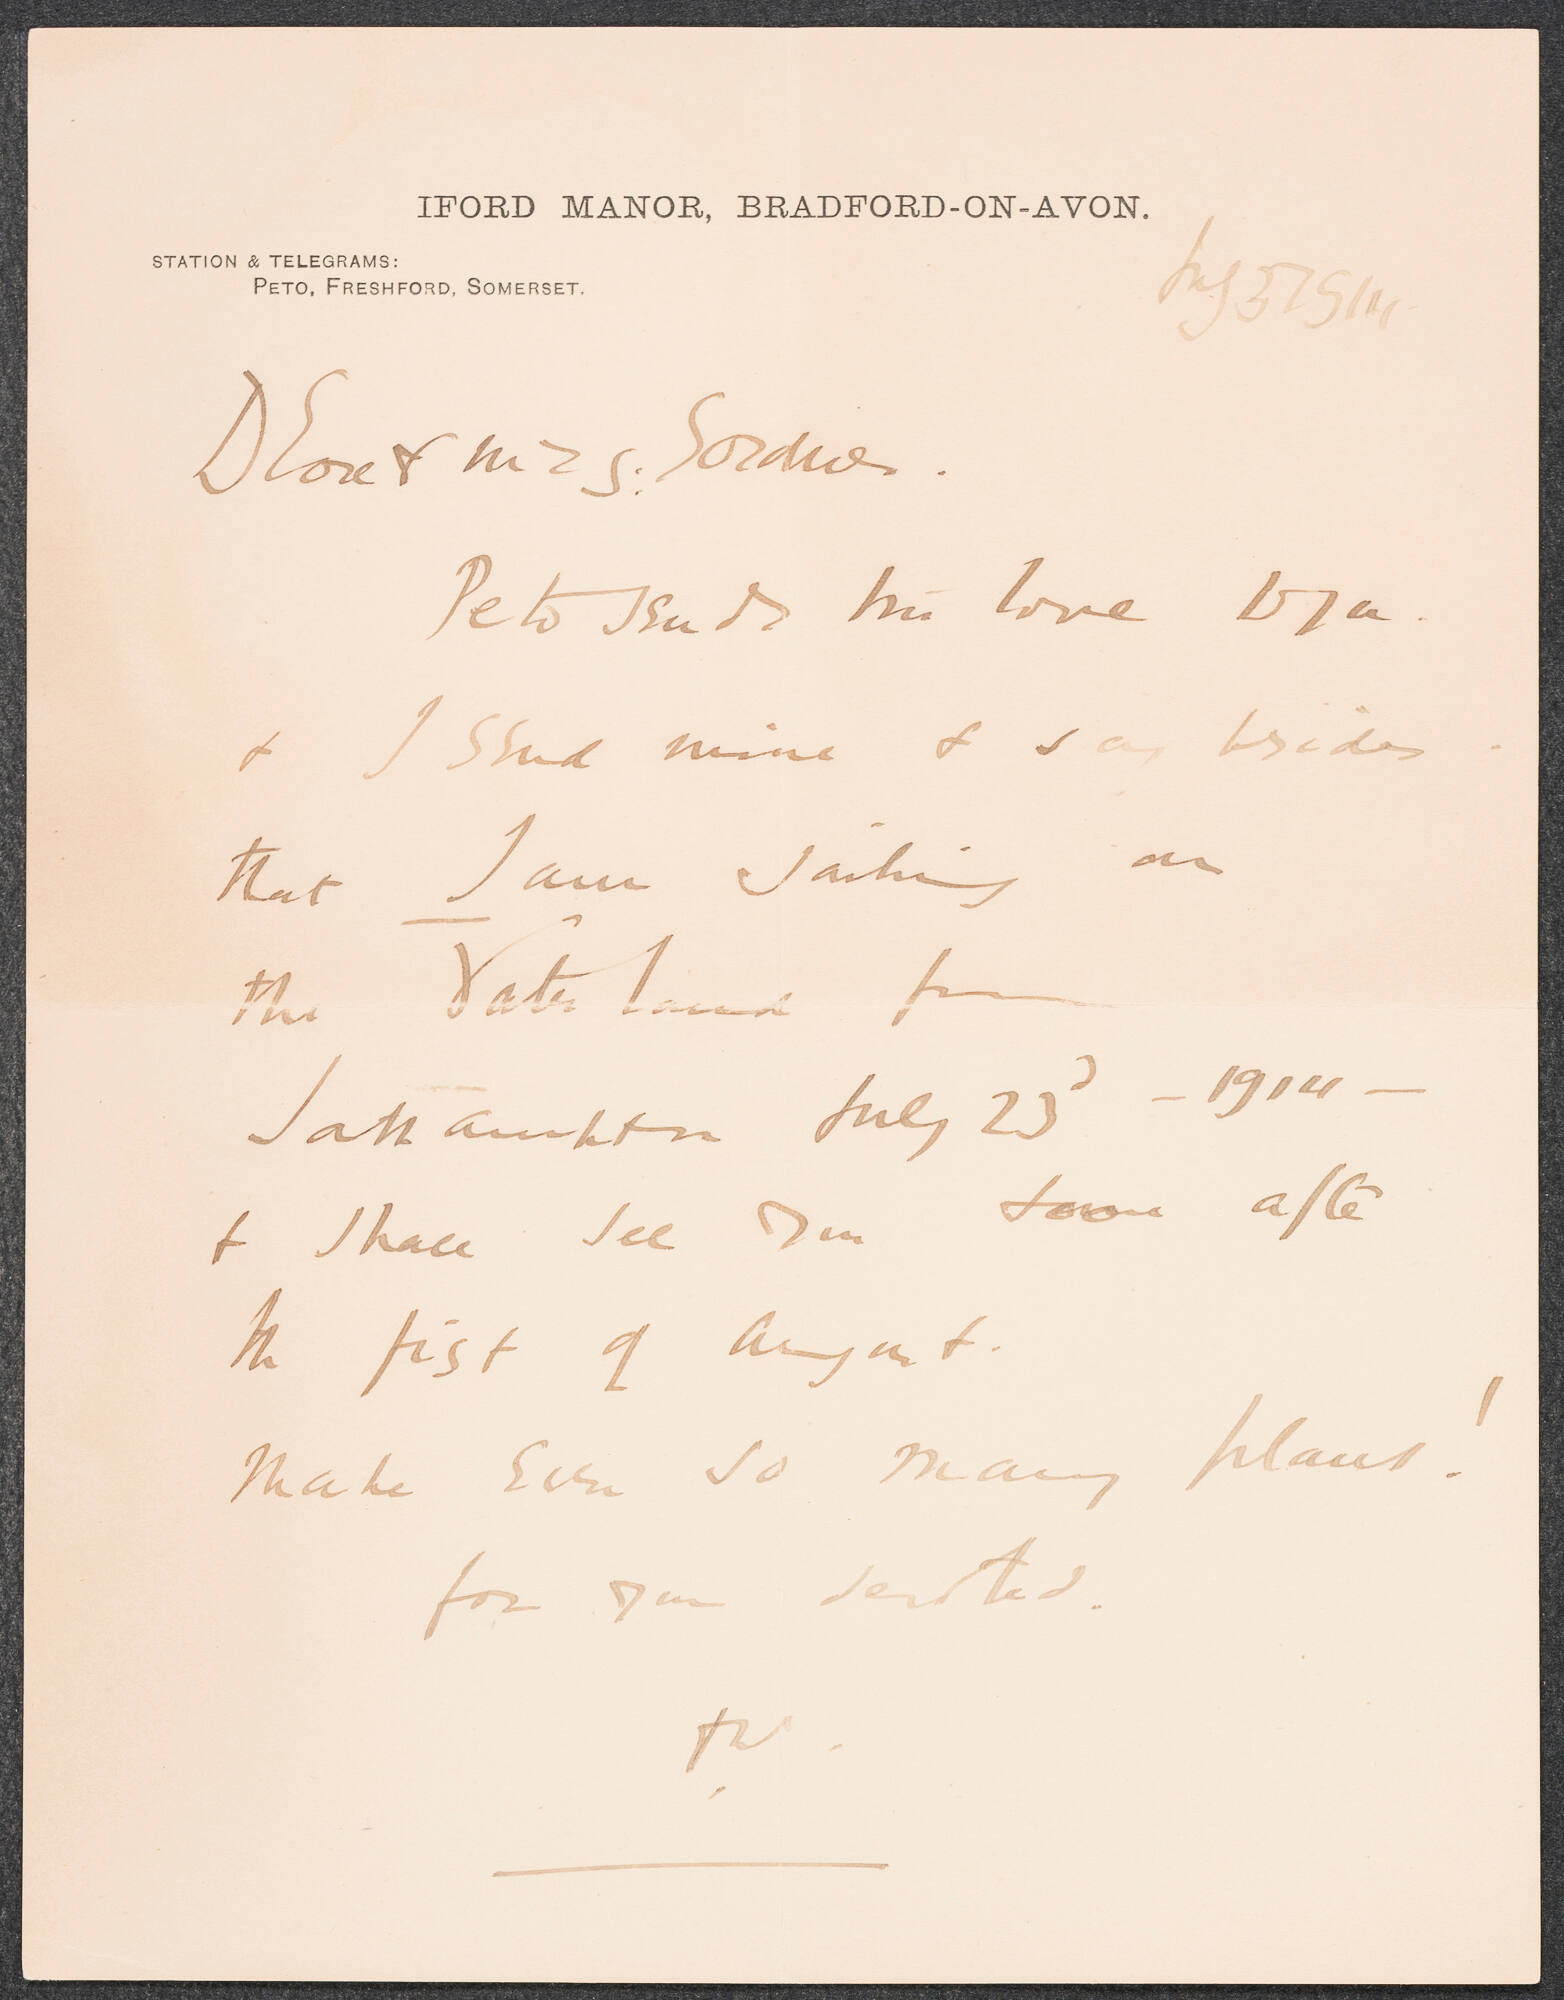 IFORD MANOR, BRADFORD-ON-AVON.
STATION & TELEGRAMS:
PETO, FRESHFORD, SOMERSET.
July 3 1914
Dear & Mrs. Gardner.
Peto sends his love to you.
& I send mine & say besides.
that I am sailing on
the Vaterland from
Southampton July 23d - 1914 -
& shall see you soon after
the first of August.
Make ever so many plans!
for your devoted.